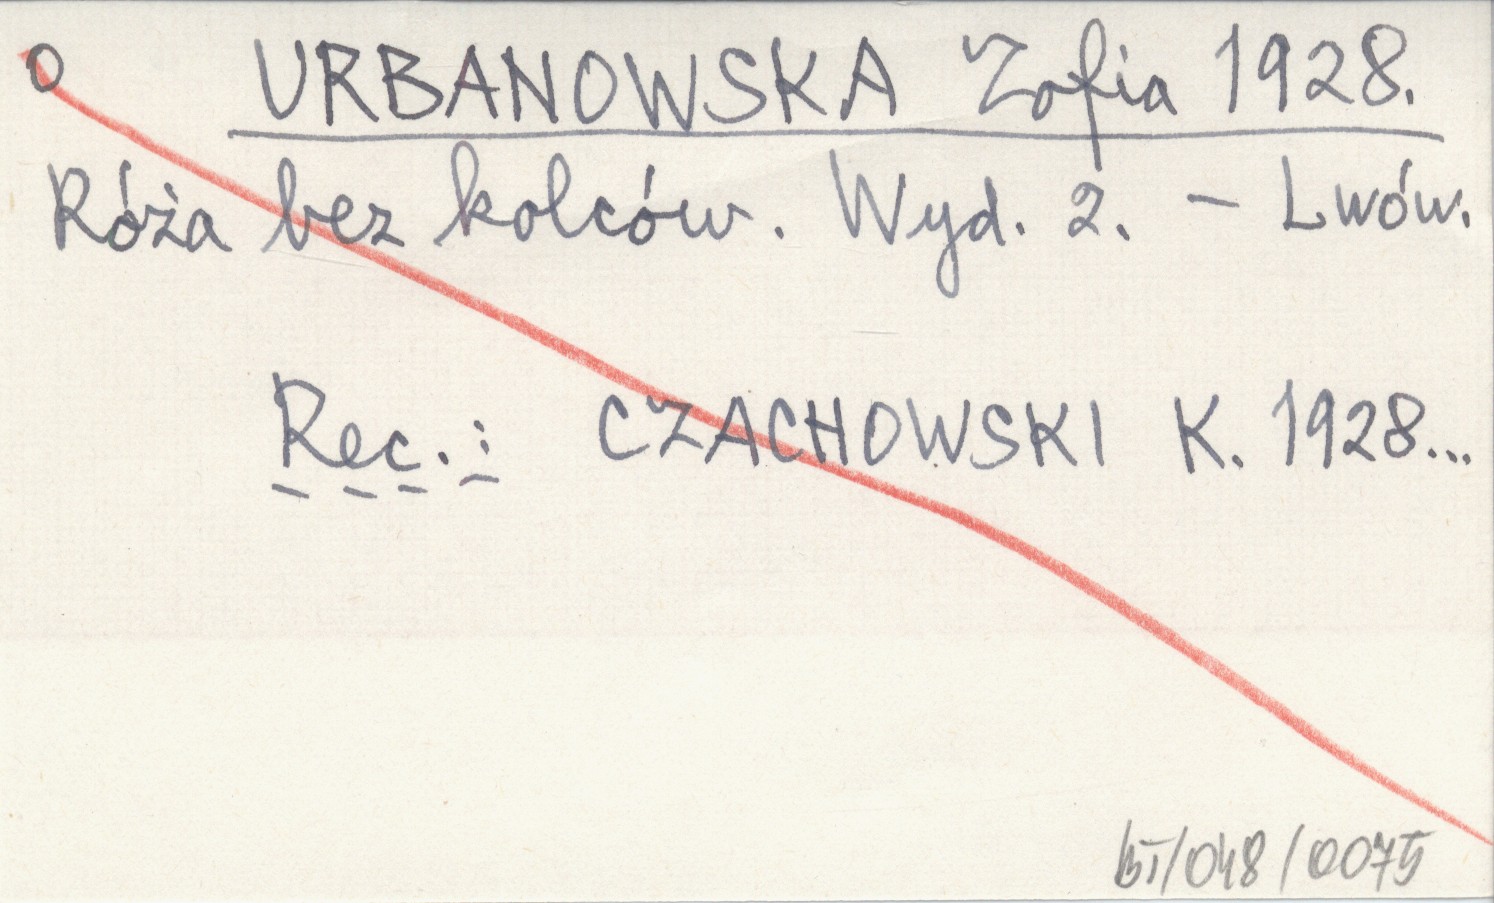 O URBANOWSKA Zofia 1928.
Róża bez kolców. Wyd. 2. - Lwów.
Rec.: CZACHOWSKI K. 1928...
BI/048/0075